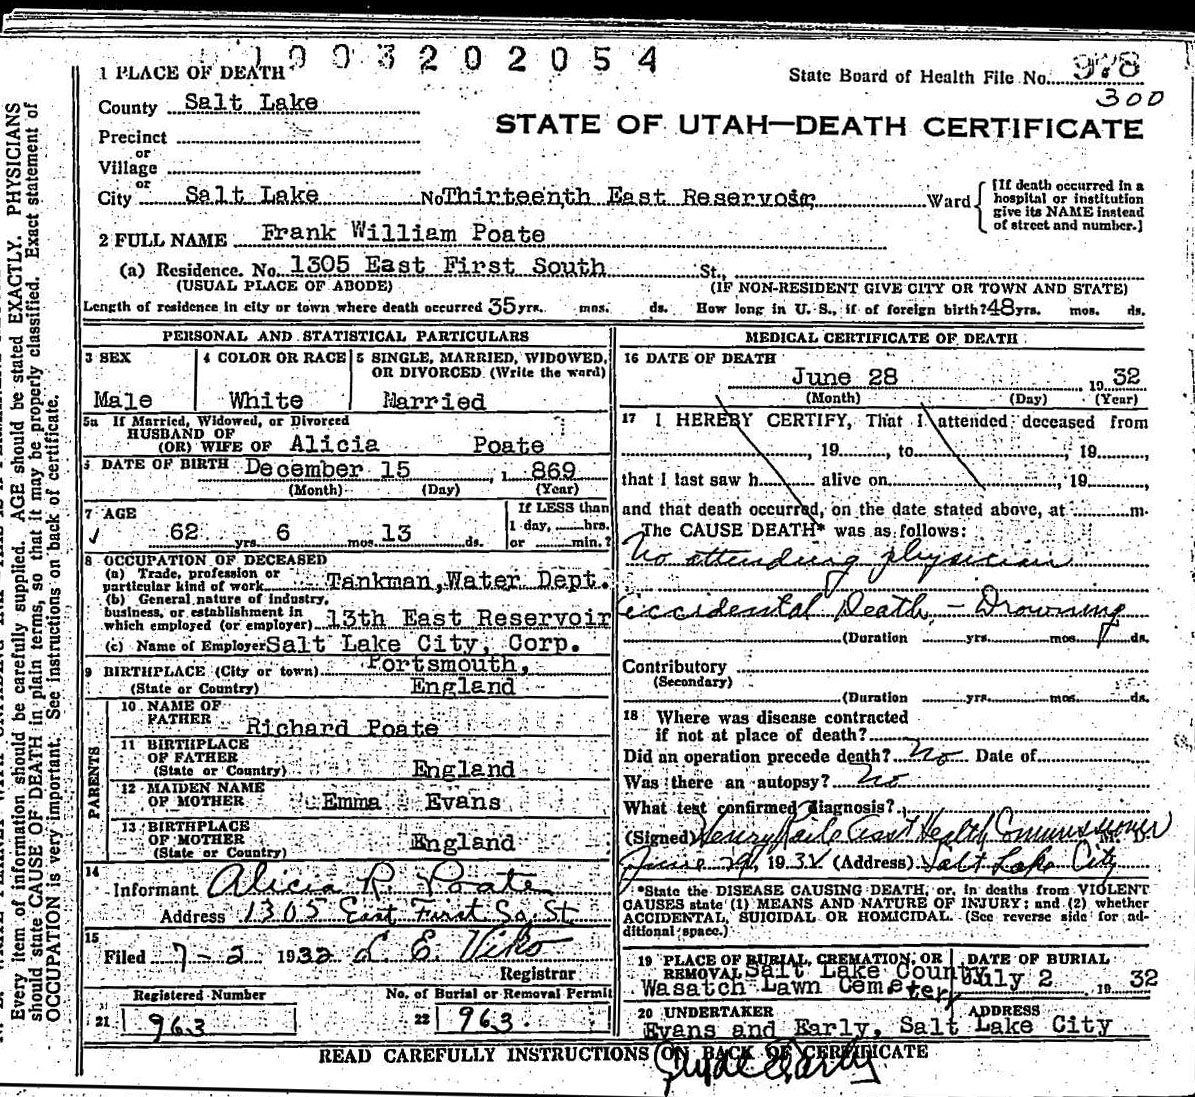 1003202054
1 PLACE OF DEATH
State Board of Health File No. 978
300
County Salt Lake
STATE OF UTAH—DEATH CERTIFICATE
Precinct
or
Village
or
City Salt Lake No. Thirteenth East Reservoir Ward
[If death occurred in a
hospital or institution
give its NAME instead
of street and number.]
2 FULL NAME Frank William Poate
(a) Residence. No. 1305 East First South St.,
(USUAL PLACE OF ABODE) (IF NON-RESIDENT GIVE CITY OR TOWN AND STATE)
Length of residence in city or town where death occurred 35 yrs. mos. ds. How long in U. S., if of foreign birth? 48 yrs. mos. ds.
PERSONAL AND STATISTICAL PARTICULARS
3 SEX 4 COLOR OR RACE 5 SINGLE, MARRIED, WIDOWED,
OR DIVORCED (Write the word)
Male White Married
5a If Married, Widowed, or Divorced
HUSBAND OF
(OR) WIFE OF Alicia Poate
DATE OF BIRTH December 15, 1869
(Month) (Day) (Year)
7 AGE If LESS than
1 day, hrs.
62 yrs. 6 mos. 13 ds. or min.?
8 OCCUPATION OF DECEASED
(a) Trade, profession or
particular kind of work Tankman, Water Dept.
(b) General nature of industry,
business, or establishment in
which employed (or employer) 13th East Reservoir
(c) Name of Employer Salt Lake City, Corp.
9 BIRTHPLACE (City or town) Portsmouth,
(State or Country) England
PARENTS
10 NAME OF
FATHER Richard Poate
11 BIRTHPLACE
OF FATHER
(State or Country) England
12 MAIDEN NAME
OF MOTHER Emma Evans
13 BIRTHPLACE
OF MOTHER
(State or Country) England
14
Informant Alicia R. Poate
Address 1305 East First So. St
15
Filed 7-2 1932 L. E. Viko
Registrar
Registered Number No. of Burial or Removal Permit
21 963 22 963.
MEDICAL CERTIFICATE OF DEATH
16 DATE OF DEATH
June 28, 1932
(Month) (Day) (Year)
17 I HEREBY CERTIFY, That I attended deceased from
, 19 , to , 19 ,
that I last saw h alive on , 19 ,
and that death occurred, on the date stated above, at m.
The CAUSE DEATH* was as follows:
No attending physician
Accidental Death - Drowning
(Duration yrs. mos. ds.
Contributory
(Secondary)
(Duration yrs. mos. ds.
18 Where was disease contracted
if not at place of death?
Did an operation precede death? No Date of
Was there an autopsy? No
What test confirmed diagnosis?
(Signed) Asst Health Commissioner M. D.
June 29, 1932 (Address) Salt Lake City
*State the DISEASE CAUSING DEATH, or, in deaths from VIOLENT
CAUSES state (1) MEANS AND NATURE OF INJURY; and (2) whether
ACCIDENTAL, SUICIDAL OR HOMICIDAL. (See reverse side for ad-
ditional space.)
19 PLACE OF BURIAL, CREMATION, OR DATE OF BURIAL
REMOVAL Salt Lake County
Wasatch Lawn Cemetery July 2 1932
20 UNDERTAKER ADDRESS
Evans and Early, Salt Lake City
READ CAREFULLY INSTRUCTIONS ON BACK OF CERTIFICATE
Every item of information should be carefully supplied. AGE should be stated EXACTLY. PHYSICIANS
should state CAUSE OF DEATH in plain terms, so that it may be properly classified. Exact statement of
OCCUPATION is very important. See instructions on back of certificate.